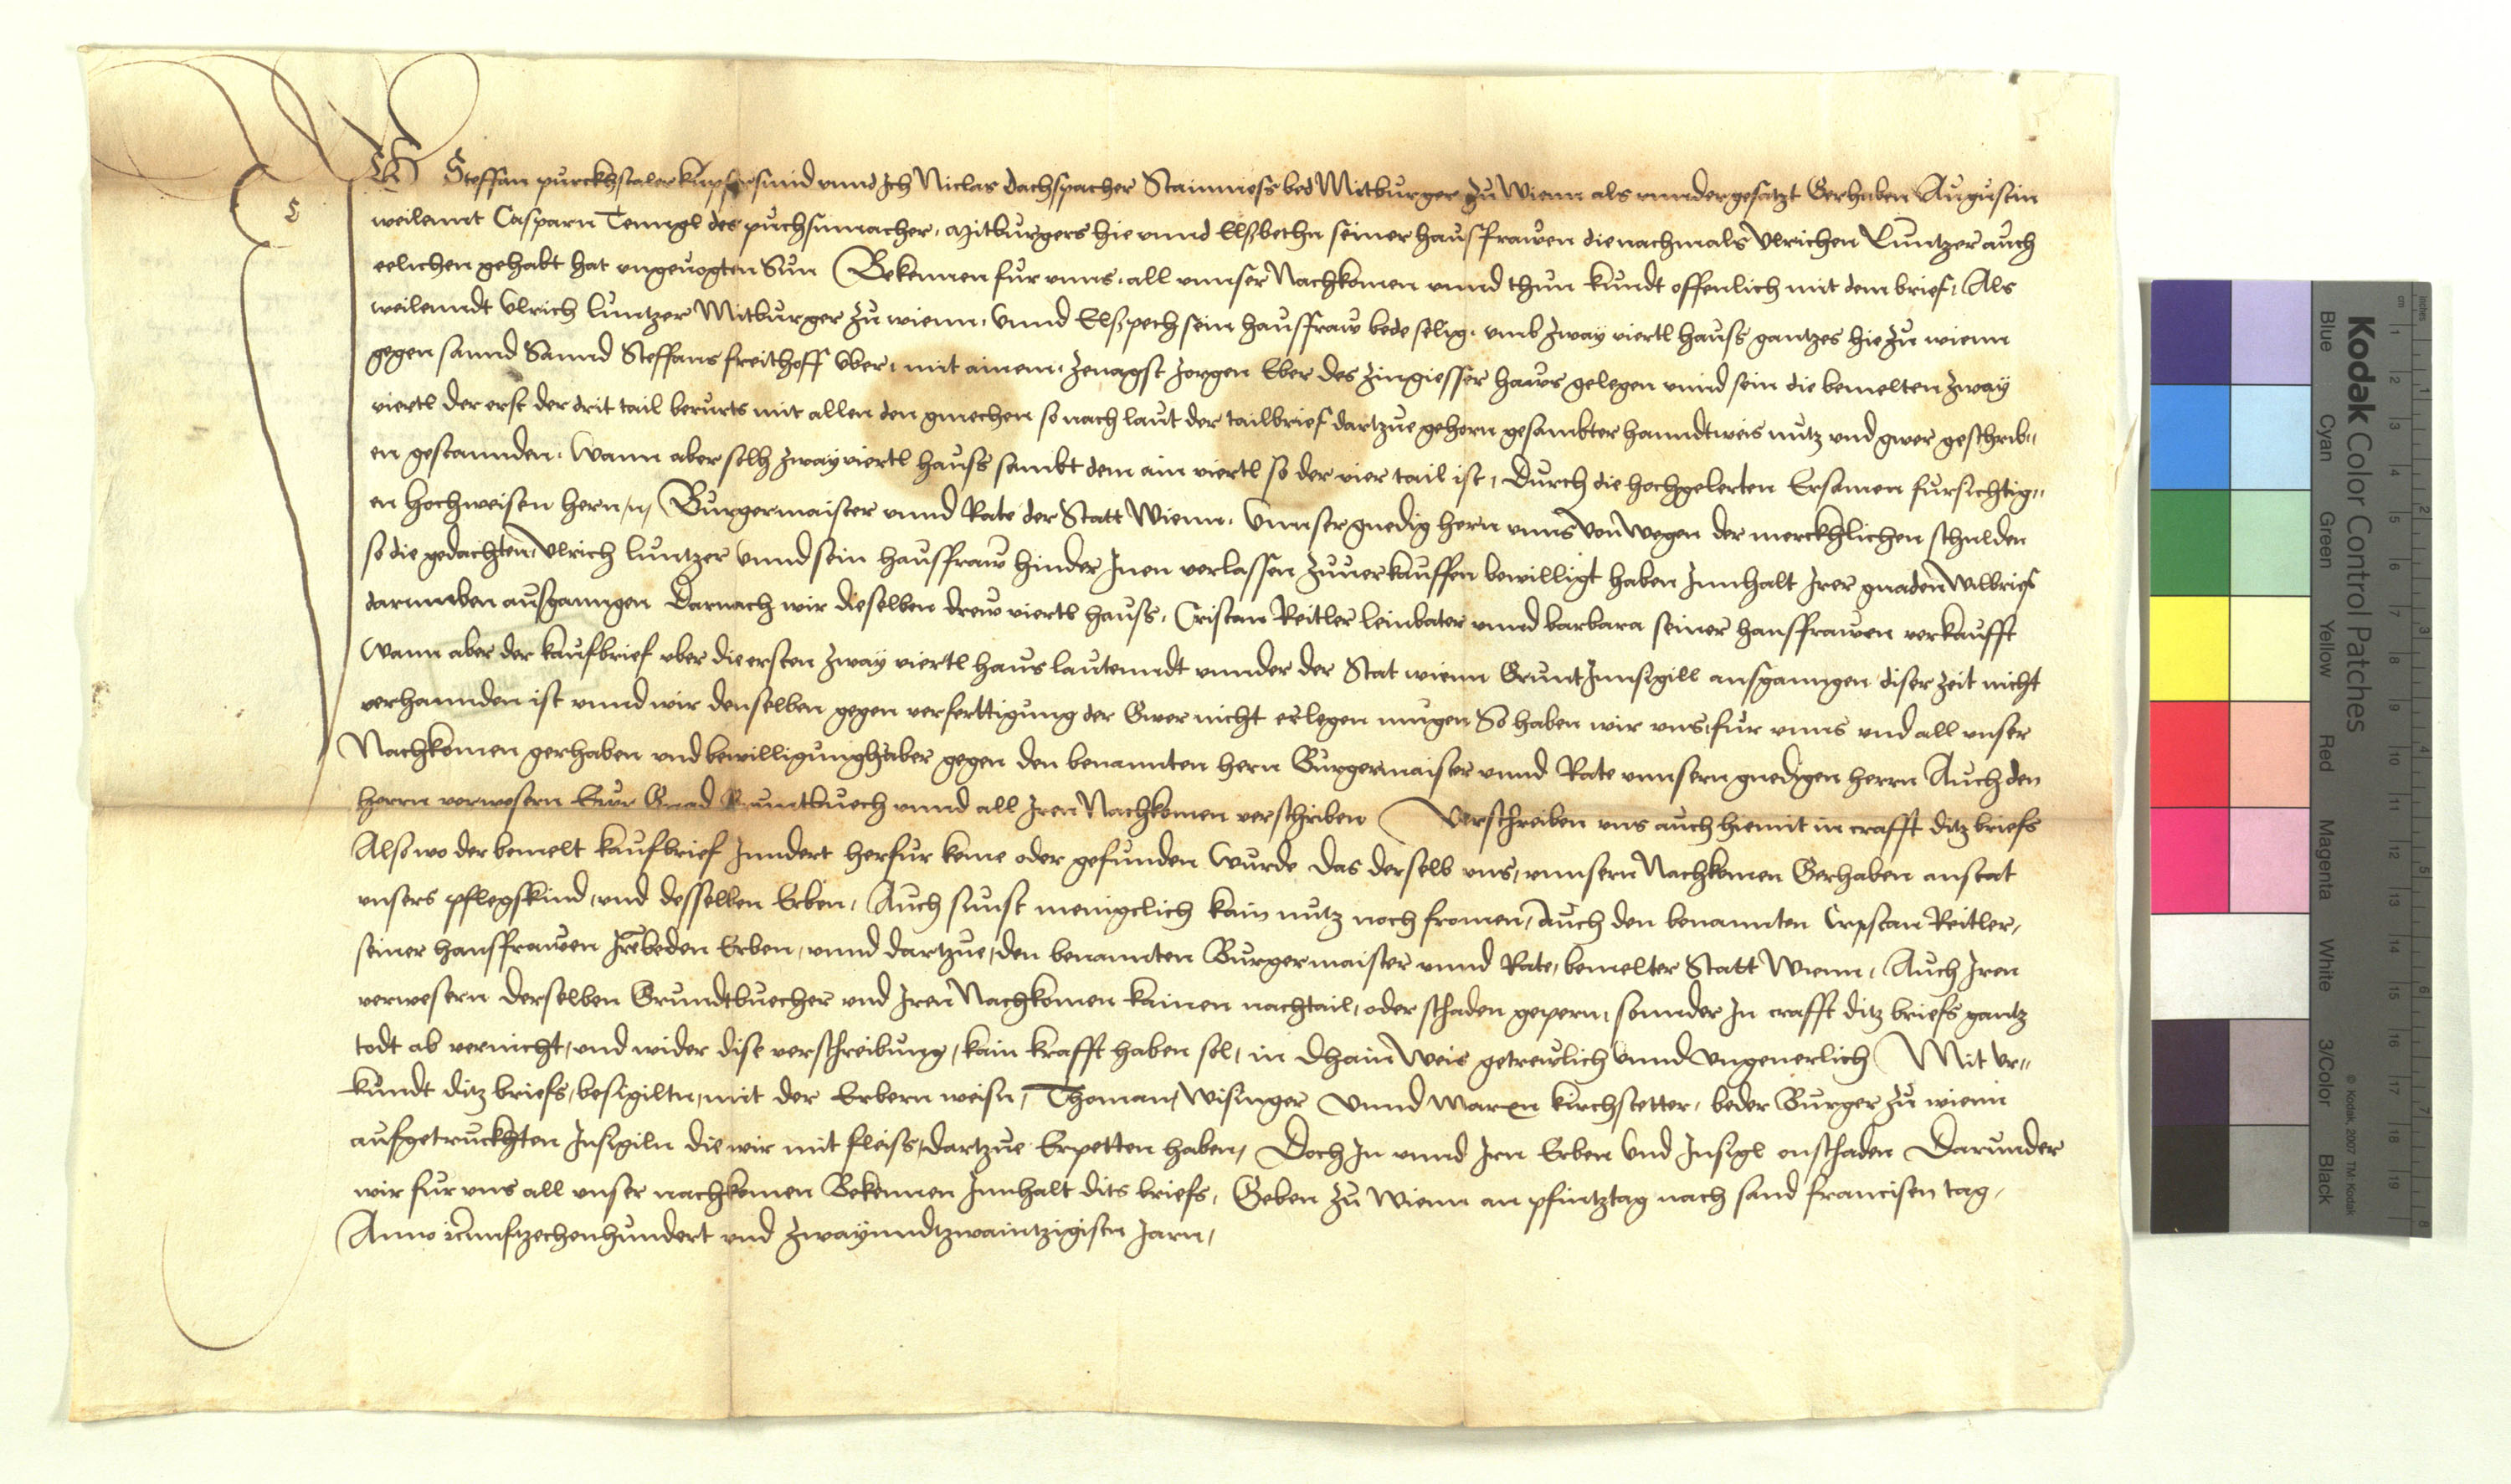 ICH Steffan purckhstaler kupfersmid vnnd Ich Niclas dachspacher Stainmess bed Mitburger zu Wienn als vnndergesatzt Gerhaben Augustin
weilennt Casparn Tenngl des puchsnmacher, mitburgers hie vnnd Elsbethn seiner hausfrawen die nachmals Vlrichen Luntzer auch
eelichen gehabt hat vngeuogten Sun Bekennen fur vnns, all vnnser Nachkomen vnnd thun kundt offenlich mit dem brief, Als
weilenndt Vlrich luntzer Mitburger zu wienn, Vnnd Elspeth sein hausfraw bede selig, vmb zway viertl hauss gantzes hie zu wienn
gegen sannd Sannd Steffans freithoff vber, mit ainem, zenagst Jorgen Eber des zingiesser haws gelegen vnnd sein die bemelten zway
viertl der erst der drit tail berurts mit allen den gmechen so nach laut der tailbrief dartzue gehorn gesambter hanndtweis nutz vnd gwer geschrib„
en gestannden, Wann aber solh zway viertl hauss sambt dem ain viertl so der vier tail ist, Durch die hochgelerten Ersamen fursichtig„
en hochweisen hern, n, Burgermaister vnnd Rate der Statt Wienn, Vnnser gnedig hern vnns Von Wegen der merckhlichen schulden
so die gedachten, Vlrich luntzer Vnnd sein hausfraw hinder Inen verlassen zuuerkauffen bewilligt haben Innhalt Irer gnaden Wilbriefs
darumben ausganngen Darnach wir dieselben drew viertl hauss, Cristan Reitler leinbater vnnd barbara seiner hausfrawen verkaufft
Wann aber der kaufbrief vber die ersten zway viertl haus lautenndt vnnder der Stat wienn Grunt Innsigill ausganngen diser zeit nicht
verhannden ist vnnd wir denselben gegen verferttigung der Gwer nicht erlegen mugen So haben wir vns, fur vnns vnd all vnser
Nachkomen gerhaben vnd bewilligunghaber gegen den benannten hern Burgermaister vnnd Rate vnnsern gnedigen herrn Auch den
herrn verwesern Ewr Gnad Gruntbuech vnnd all Iren Nachkomen verschriben Verschreiben vns auch hiemit in crafft ditz briefs
Also wo der bemelt kaufbrief Inndert herfur keme oder gefunden wurde das derselb vns, vnnsern Nachkomen Gerhaben anstat
vnsers pflegskind, vnd desselben Erben, Auch sunst menigclich kain nutz noch fromen, Auch den benannten Cristan Reitler,
seiner hausfrawen Ir beden Erben, vnnd dartzue, den benannten Burgermaister vnnd Rate, bemelter Statt Wienn, Auch Iren
verwesern derselben Grundtbuecher vnd Iren Nachkomen kainen nachtail, oder schaden gepern, sonnder In crafft ditz briefs gantz
todt ab vernicht, vnd wider dise verschreibung, kain krafft haben sol, in dhain Weis getrewlich Vnnd Vngeuerlich Mit Vr„
kundt ditz briefs, besigiltn, mit der Erbern weisn, Thoman, Wisinger Vnnd Marxn kirchstetter, beder Burger zu wienn
aufgetruckhten Insigiln die wir mit fleiss, dartzue Erpetten haben, Doch In vnnd Irn Erben Vnd Insigl onschaden Darunder
wir fur vns all vnser nachkomen Bekennen Innhalt dits briefs, Geben zu Wienn an pfintztag nach sand francisen tag,
Anno im funftzechenhundert vnd zwayunndtzwaintzigisten Jarn,
Kodak Color Control Patches
Blue Cyan Green Yellow Red Magenta White 3/Color Black
© Kodak, 2007 TM: Kodak
inches 1 2 3 4 5 6 7 8
cm 1 2 3 4 5 6 7 8 9 10 11 12 13 14 15 16 17 18 19